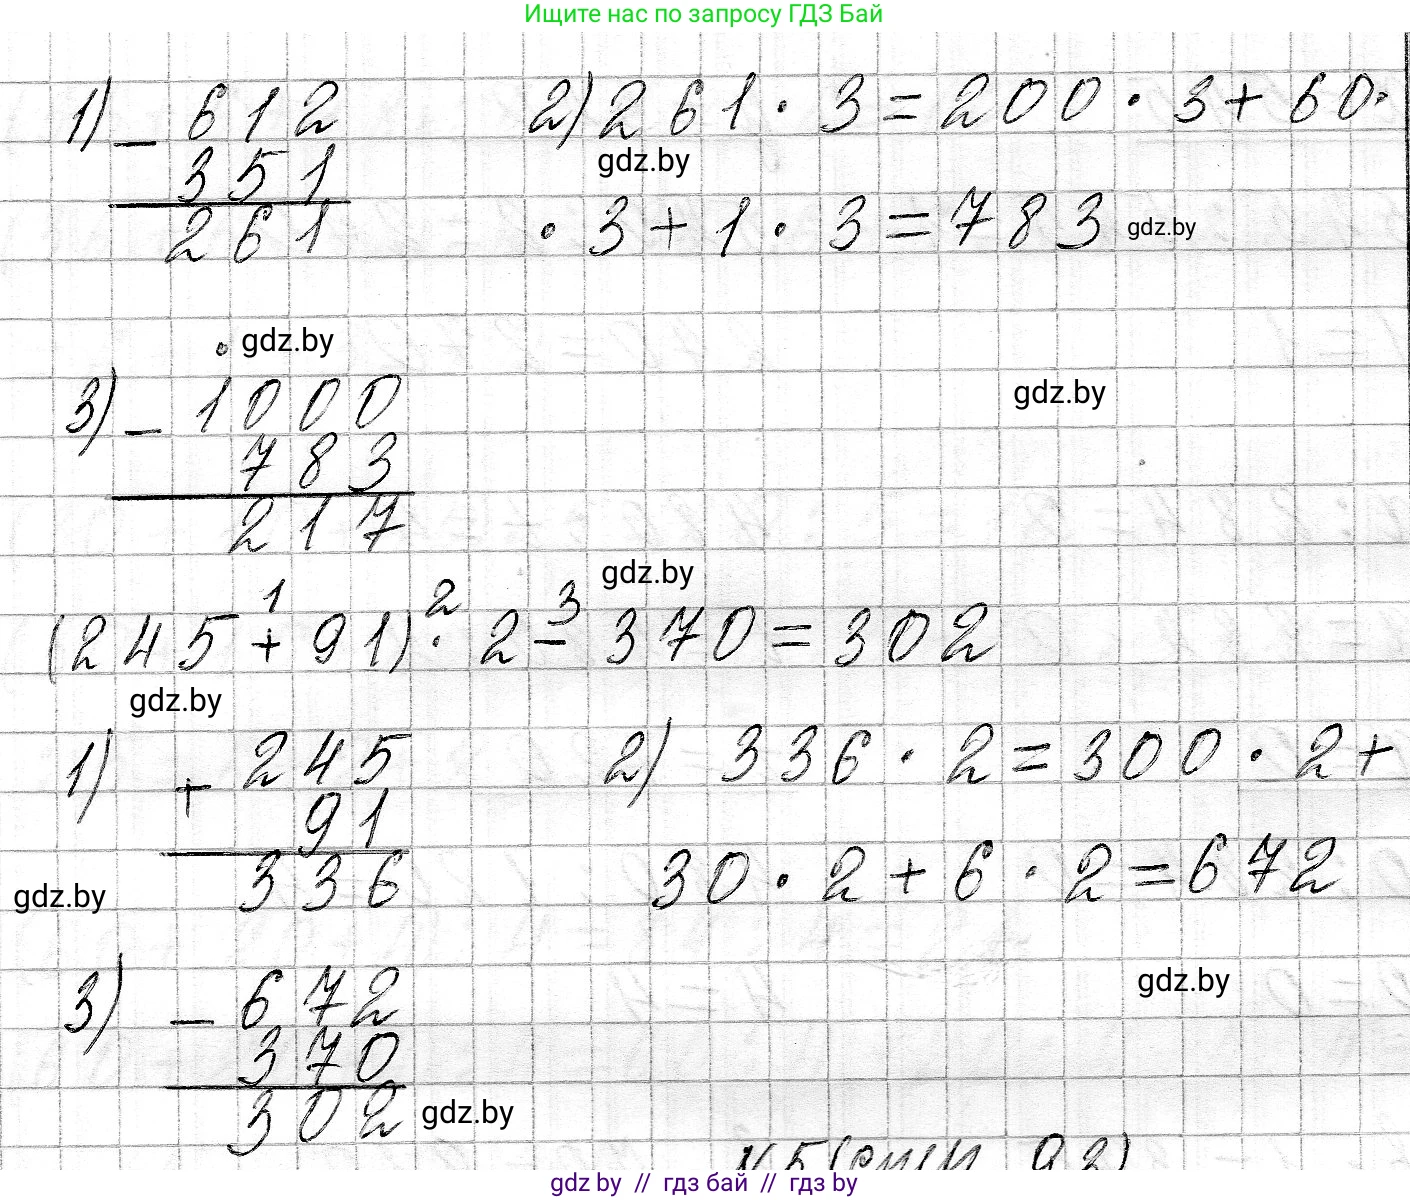 Ищите нас по запросу ГДЗ Бай
1) − 612
351
261
2) 261 · 3 = 200 · 3 + 60 ·
gdz.by
· 3 + 1 · 3 = 783 gdz.by
gdz.by
3) − 1000
783
217
gdz.by
gdz.by
1 2 3
(245 + 91) · 2 − 370 = 302
gdz.by
1) + 245
91
336
2) 336 · 2 = 300 · 2 +
30 · 2 + 6 · 2 = 672
gdz.by
3) − 672
370
302
gdz.by
gdz.by
gdz.by // гдз бай // гдз by